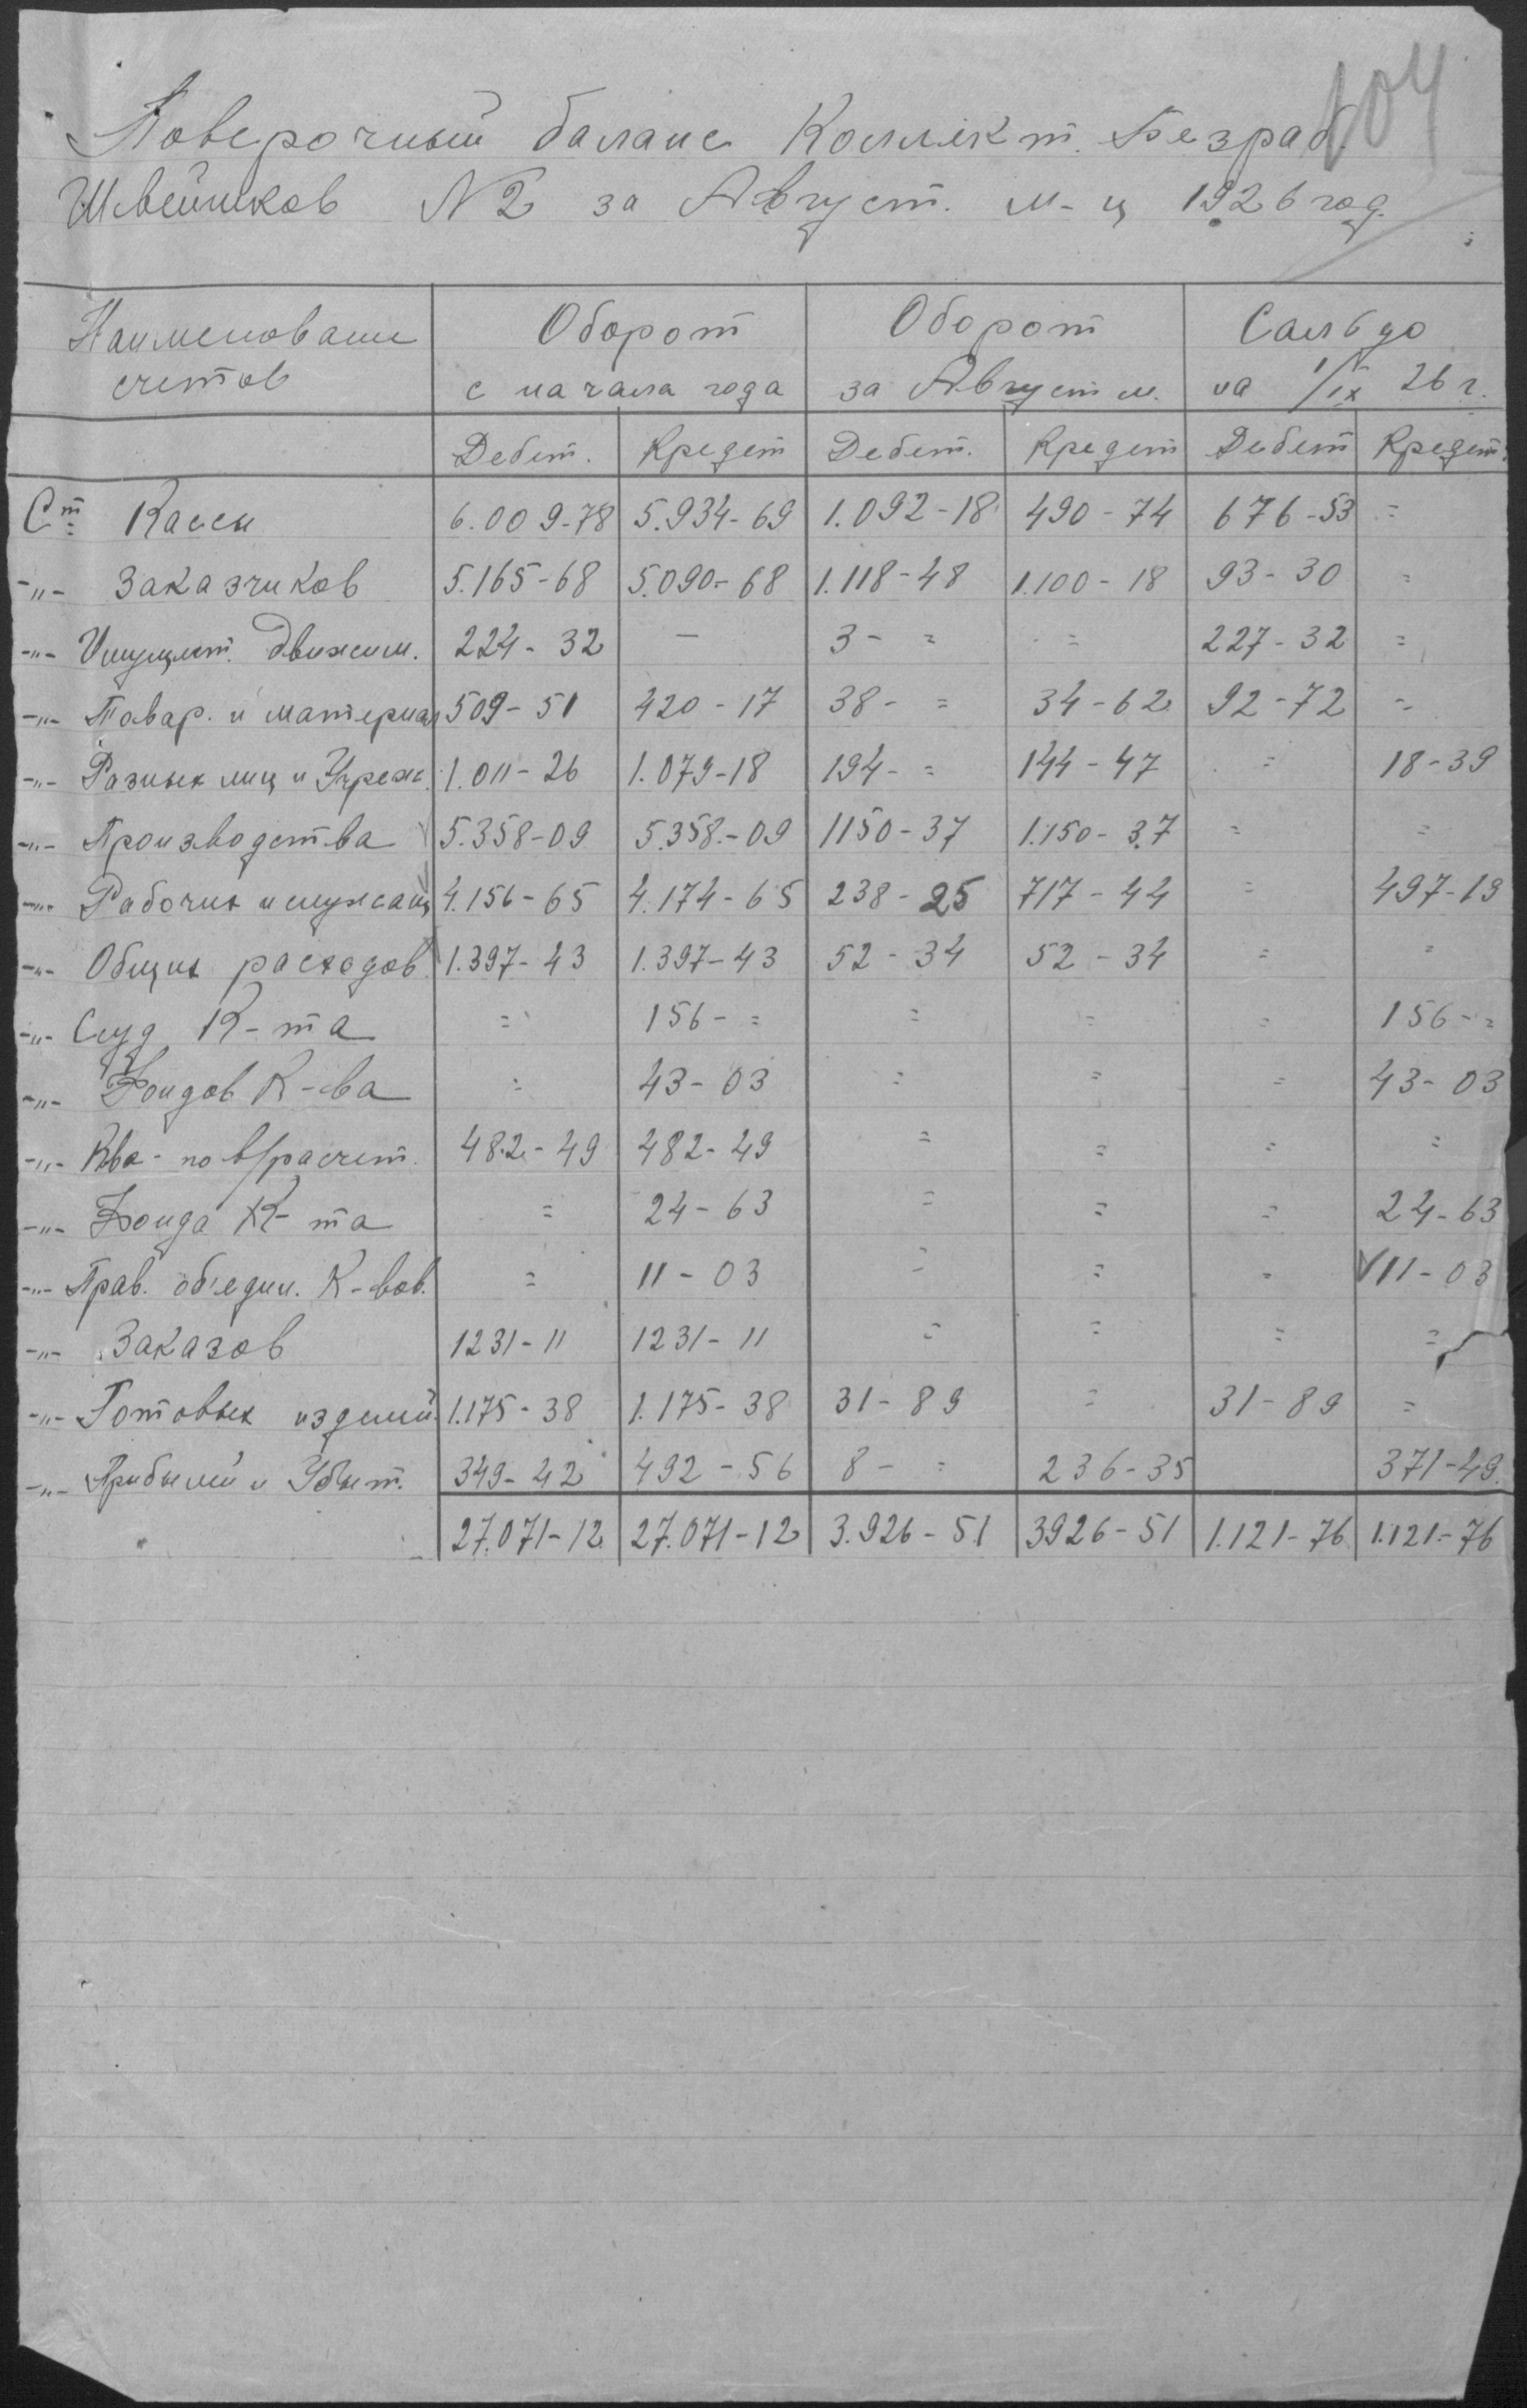 104
Поверочный баланс Коллект. Безраб.
Швейников N 2 за Август. м-ц 1926 год.
Наименование счетов | Оборот с начала года | Оборот за Август м. | Сальдо на 1/IX 26 г.
Дебет. | Кредет | Дебет. | Кредет | Дебет | Кредет.
Ст Кассы | 6.009-78 | 5.934-69 | 1.092-18 | 490-74 | 676-53 | =
-"- Заказчиков | 5.165-68 | 5.090-68 | 1.118-48 | 1.100-18 | 93-30 | =
-"- Имущест. движим. | 224-32 | — | 3- = | = | 227-32 | =
-"- Товар. и материал | 509-51 | 420-17 | 38- = | 34-62 | 92-72 | =
-"- Разных лиц и Учреж. | 1.011-26 | 1.079-18 | 194- = | 144-47 | = | 18-39
-"- Производства | 5.358-09 | 5.358-09 | 1150-37 | 1.150-37 | = | =
-"- Рабочих и служащ | 4.156-65 | 4.174-65 | 238-25 | 717-44 | = | 497-19
-"- Общих расходов | 1.397-43 | 1.397-43 | 52-34 | 52-34 | = | =
-"- Ссуд К-та | = | 156- = | = | = | = | 156- =
-"- Фондов К-ва | = | 43-03 | = | = | = | 43-03
-"- Ква- по в/расчет. | 482-49 | 482-49 | = | = | = | =
-"- Фонда К-та | = | 24-63 | = | = | = | 24-63
-"- Прав. об'един. К-вов. | = | 11-03 | = | = | = | V 11-03
-"- Заказов | 1231-11 | 1231-11 | = | = | = | =
-"- Готовых изделий | 1.175-38 | 1.175-38 | 31-89 | = | 31-89 | =
-"- Прибылей и Убыт. | 349-42 | 492-56 | 8- = | 236-35 | | 371-49.
27.071-12 | 27.071-12 | 3.926-51 | 3926-51 | 1.121-76 | 1.121-76